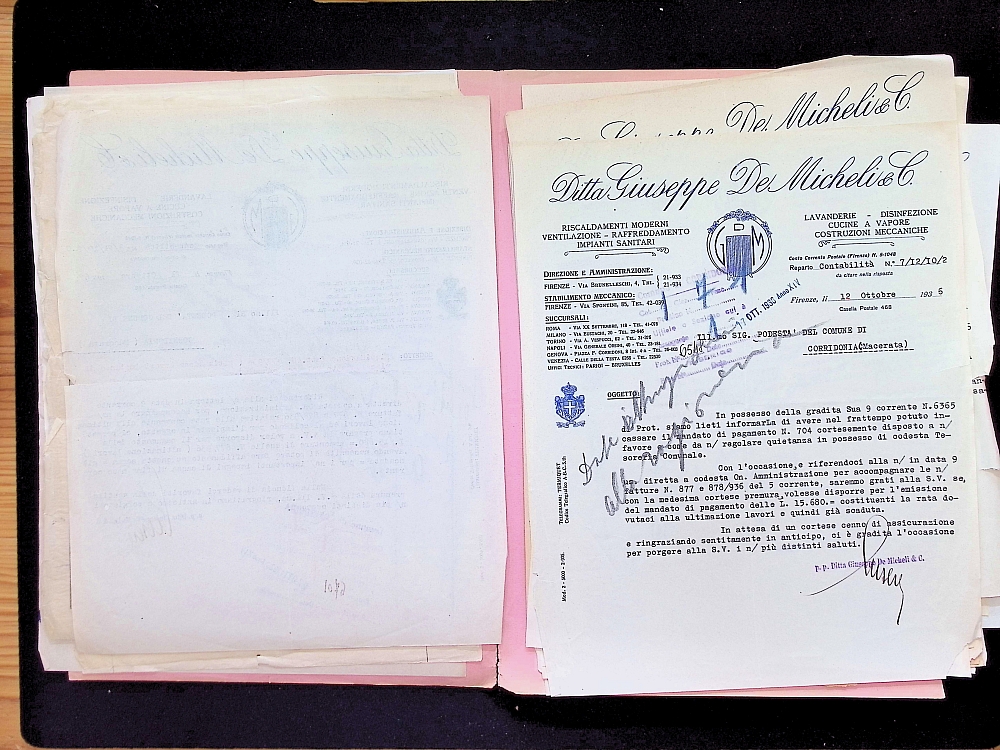 De Micheli & C.
Ditta Giuseppe De Micheli & C.
RISCALDAMENTI MODERNI
VENTILAZIONE - RAFFREDDAMENTO
IMPIANTI SANITARI
G M
LAVANDERIE - DISINFEZIONE
CUCINE A VAPORE
COSTRUZIONI MECCANICHE
Conto Corrente Postale (Firenze) N. 5-1048
Reparto Contabilità N.° 7/12/10/2
da citare nella risposta
DIREZIONE E AMMINISTRAZIONE:
FIRENZE - VIA BRUNELLESCHI, 4, TEL. 21-933
21-934
STABILIMENTO MECCANICO:
FIRENZE - VIA SPONTINI, 85, TEL.
Firenze, li 12 Ottobre 1936
Casella Postale 468
17 OTT. 1936 Anno XIV
SUCCURSALI:
ROMA - VIA XX SETTEMBRE, 118 - TEL. 41-078
MILANO - VIA EUSTACHI, 20 - TEL.
TORINO - VIA A. VESPUCCI, 62 - TEL.
NAPOLI - VIA GENERALE ORSINI, 40 - TEL.
GENOVA - PIAZZA P. CORRIDONI, 8 Int. 4 A - TEL.
VENEZIA - CALLE DELLA TESTA 6358 - TEL.
UFFICI TECNICI: PARIGI - BRUXELLES
Ill.mo SIG. PODESTA' DEL COMUNE DI
CORRIDONIA(Macerata)
OGGETTO:
In possesso della gradita Sua 9 corrente N.6365
di Prot. siamo lieti informarLa di avere nel frattempo potuto in-
cassare il mandato di pagamento N. 704 cortesemente disposto a n/
favore come da n/ regolare quietanza in possesso di codesta Te-
soreria Comunale.
Con l'occasione,e riferendoci alla n/ in data 9
us. diretta a codesta On. Amministrazione per accompagnare le n/
fatture N. 877 e 878/936 del 5 corrente, saremo grati alla S.V. se,
con la medesima cortese premura,volesse disporre per l'emissione
del mandato di pagamento delle L. 15.680.= costituenti la rata do-
vutaci alla ultimazione lavori e quindi già scaduta.
In attesa di un cortese cenno di assicurazione
e ringraziando sentitamente in anticipo, ci è gradita l'occasione
per porgere alla S.V. i n/ più distinti saluti.
P. P. Ditta Giuseppe De Micheli & C.
TELEGRAMMI: TERMOSIFONI
Codice Telegrafico A.B.C. 5th